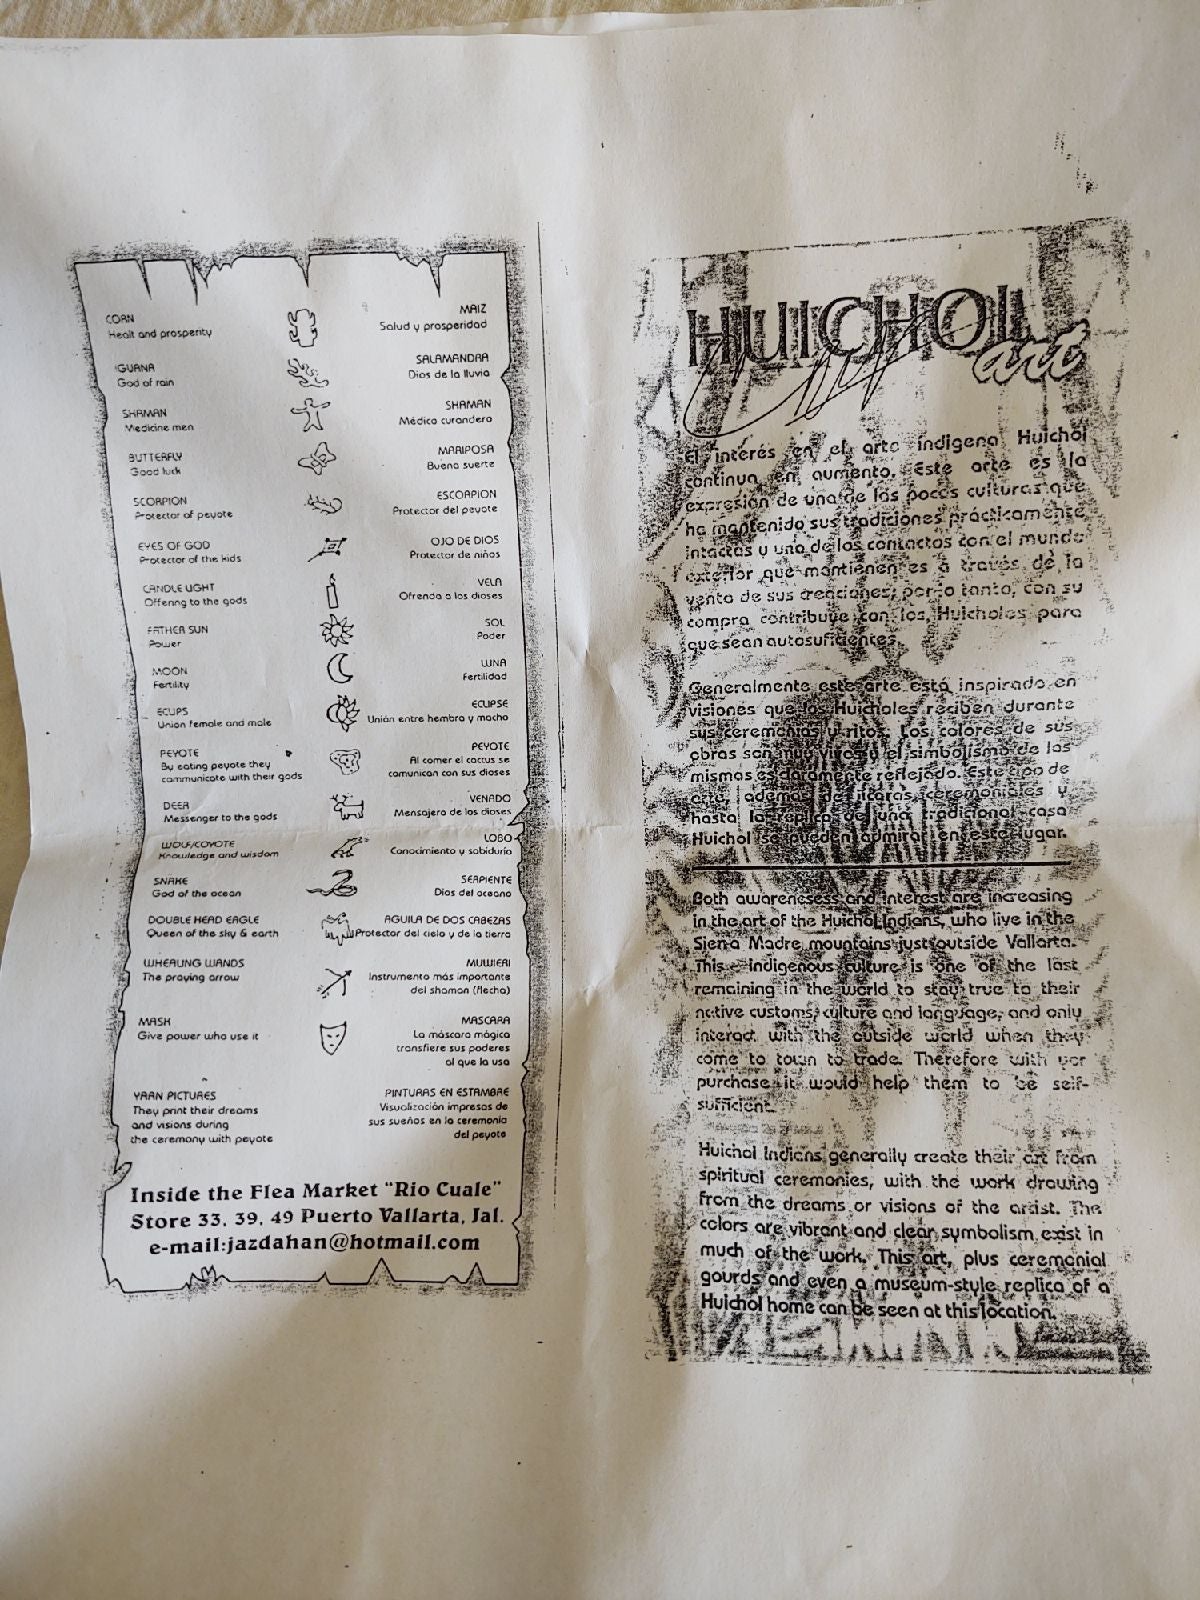 CORN
Healt and prosperity
MAIZ
Salud y prosperidad
IGUANA
God of rain
SALAMANDRA
Dios de la lluvia
SHAMAN
Medicine men
SHAMAN
Médico curandero
BUTTERFLY
Good luck
MARIPOSA
Buena suerte
SCORPION
Protector of peyote
ESCORPION
Protector del peyote
EYES OF GOD
Protector of the kids
OJO DE DIOS
Protector de niños
CANDLE LIGHT
Offering to the gods
VELA
Ofrenda a los dioses
FATHER SUN
Power
SOL
Poder
MOON
Fertility
LUNA
Fertilidad
ECLIPS
Union female and male
ECLIPSE
Unión entre hembra y macho
PEYOTE
By eating peyote they
communicate with their gods
PEYOTE
Al comer el cactus se
comunican con sus dioses
DEER
Messenger to the gods
VENADO
Mensajero de los dioses
WOLF/COYOTE
Knowledge and wisdom
LOBO
Conocimiento y sabiduría
SNAKE
God of the ocean
SERPIENTE
Dios del oceano
DOUBLE HEAD EAGLE
Queen of the sky & earth
AGUILA DE DOS CABEZAS
Protector del cielo y de la tierra
WHEALING WANDS
The praying arrow
MUWIERI
Instrumento más importante
del shaman (flecha)
MASK
Give power who use it
MASCARA
La máscara mágica
transfiere sus poderes
al que la usa
YARN PICTURES
They print their dreams
and visions during
the ceremony with peyote
PINTURAS EN ESTAMBRE
Visualización impresas de
sus sueños en la ceremonia
del peyote
Inside the Flea Market "Rio Cuale"
Store 33, 39, 49 Puerto Vallarta, Jal.
e-mail:jazdahan@hotmail.com
HUICHOL
art
El interés en el arte indigena Huichol
continua en aumento. Este arte es la
expresión de una de las pocas culturas que
ha mantenido sus tradiciones prácticamente
intactas y uno de los contactos con el mundo
exterior que mantienen es a través de la
venta de sus creaciones, por lo tanto, con su
compra contribuye con los Huicholes para
que sean autosuficientes.
Generalmente este arte está inspirado en
visiones que los Huicholes reciben durante
sus ceremonias y ritos. Los colores de sus
obras son muy vivos y el simbolismo de las
mismas es claramente reflejado. Este tipo de
arte, además de jícaras ceremoniales y
hasta la réplica de una tradicional casa
Huichol se pueden admirar en este lugar.
Both awarenesess and interest are increasing
in the art of the Huichol Indians, who live in the
Sierra Madre mountains just outside Vallarta.
This indigenous culture is one of the last
remaining in the world to stay true to their
native customs, culture and language, and only
interact with the outside world when they
come to town to trade. Therefore with yor
purchase it would help them to be self-
sufficient.
Huichol Indians generally create their art from
spiritual ceremonies, with the work drawing
from the dreams or visions of the artist. The
colors are vibrant and clear symbolism exist in
much of the work. This art, plus ceremonial
gourds and even a museum-style replica of a
Huichol home can be seen at this location.